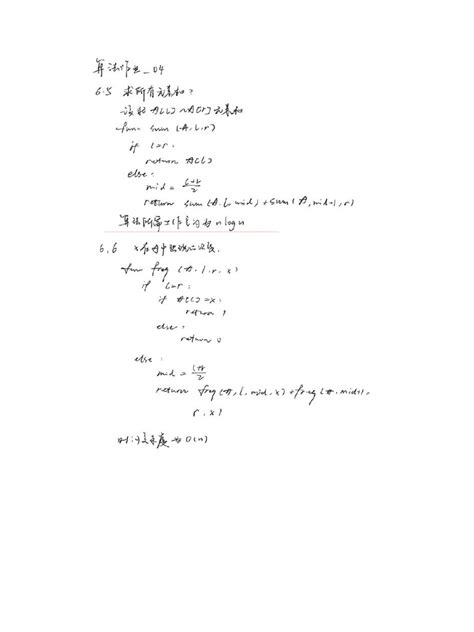 算法作业_04
6.5 求所有元素和?
设求 A[l]~A[r]元素和
func sum (A, l, r)
if l=r:
return A[l]
else:
mid = l+r/2
return sum(A, l, mid) + sum(A, mid+1, r)
算法所需工作空间为nlogn
6.6 x在A中出现的次数.
func freq (A, l, r, x)
if l=r:
if A[l]=x:
return 1
else:
return 0
else:
mid = l+r/2
return freq(A, l, mid, x) + freq(A, mid+1,
r, x)
时间复杂度为O(n)